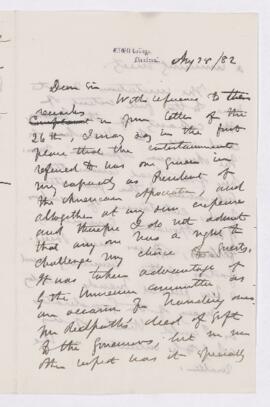 McGill College,
Montreal
Aug 28/82
Dear Sir
With reference to the
remarks
Complaint in your letter of the
26th, I may say in the first
place that the entertainment
referred to was one given in
my capacity as President of
the American Association, and
altogether at my own expense
and therefore I do not admit
that any one has a right to
challenge my choice of guests.
It was taken advantage of
by the Museum Committee as
an occasion for handing over
Mr Redpath's deed of Gift
to the Governors, but in no
other respect was it specially